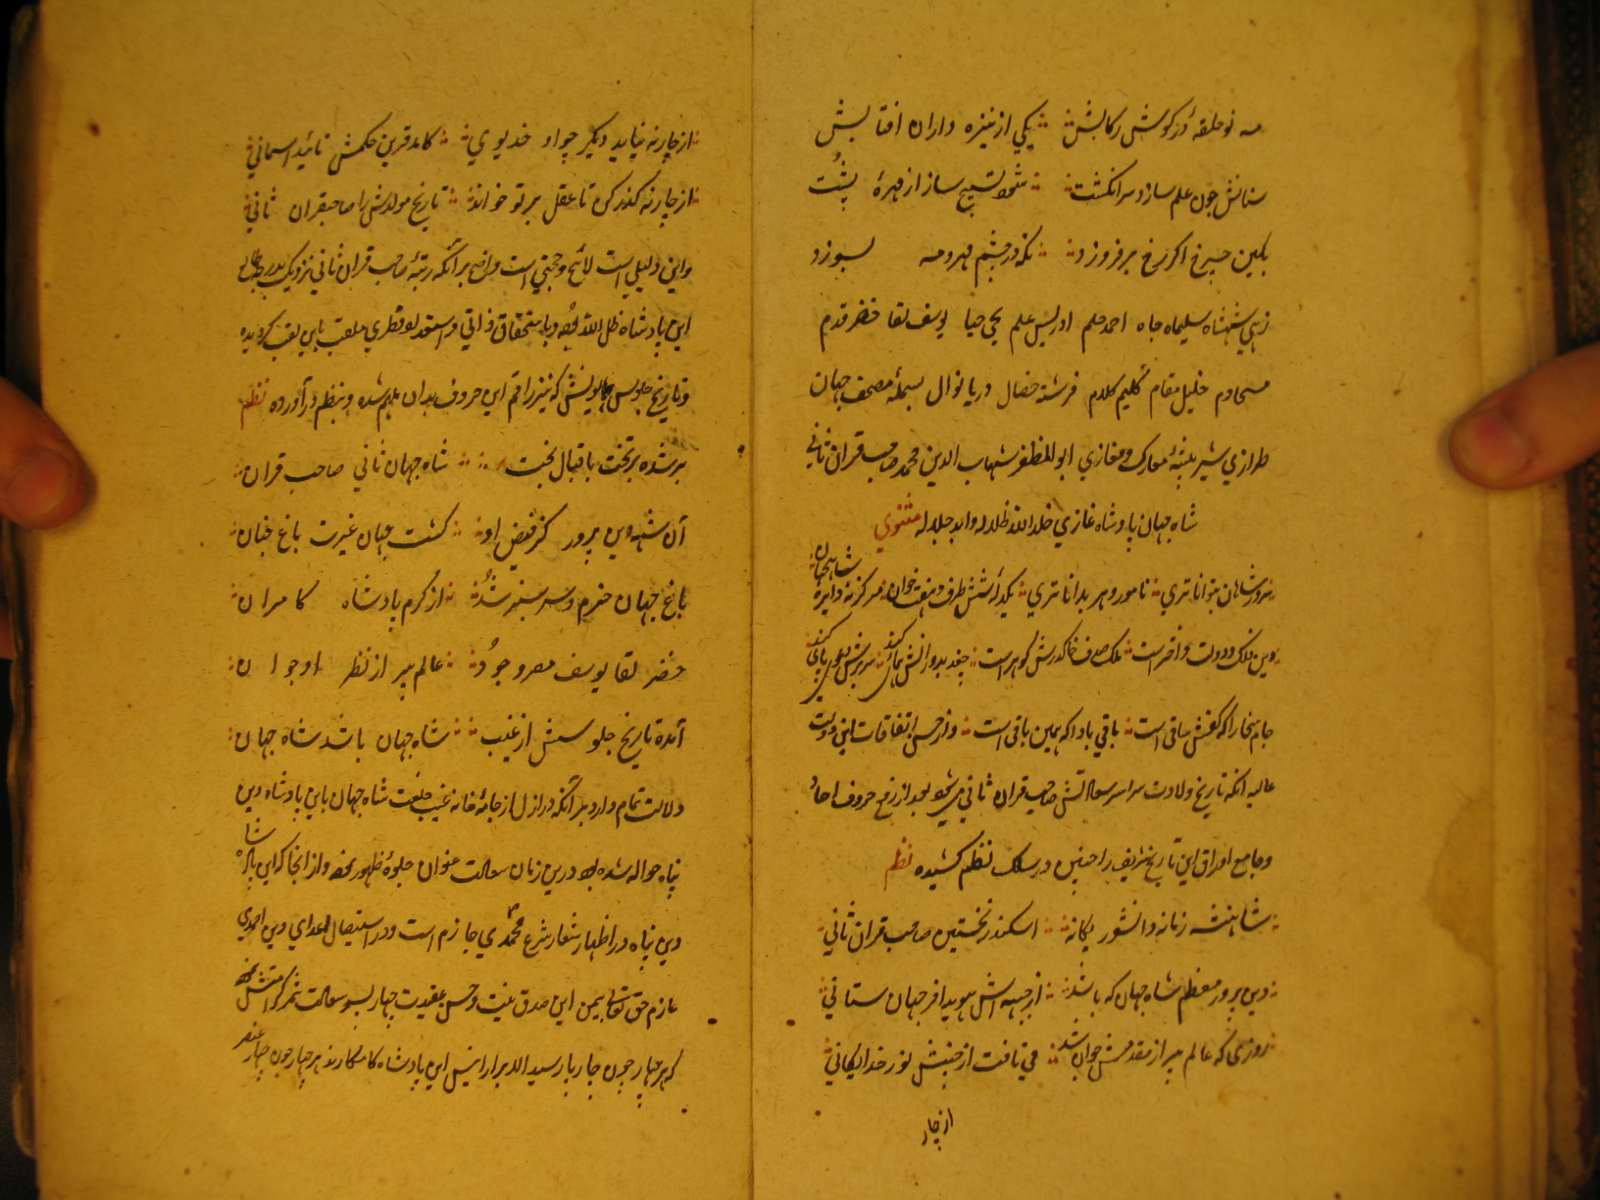 مه نو حلقهٔ در کوش رکابش یکی از نیزه داران افتابش
سنانش چون علم سازد سر انکشت شود تسبیح ساز از مهرهٔ پشت
بکین چرخ اکر رخ برفروزد نکه در چشم مهر و مه بسوزد
زهی شهنشاه سلیمان جاه احمد حلم ادریس علم یحی حیا یوسف لقا خضر قدم
مسحا دم خلیل مقام کلیم کلام فرشته خصال دریا نوال بسملهٔ مصحف جهان
طرازی شیر بیشهٔ معارک و مغازی ابو المظفر شهاب الدین محمد صاحب قران ثانی
شاه جهان پادشاه غازی خلد الله ظلاله و ابد جلاله مثنوی
ز شاهان بتوانا تری نامور دهر بدانا تری یکدلهٔ شش طرف و هفت خوان مرکز نه دایره شاهجهان
دین فلک و دولت و اختر است ملک صدف خاک درش کوهر است
جام سخا را که کفش ساقی است باقی باد آنکه همین باقی است و از حسن اتفاقات این دولت
عالیه آنکه تاریخ ولادت سراسر سعادتش صاحب قران ثانی میشود بعد از رفع حروف احاد
و جامع اوراق این تاریخ شریف را چنین در سلک نظم کشیده نظم
شاهنشه زمانه دانشور یکانه اسکندر نخستین صاحب قران ثانی
دین پرور معظم شاه جهان که باشد از جبهه اش هویدا فر جهان ستانی
روزی که عالم پیر از مقدمش جوان شد می تافت از جبینش نور خدایکانی
از چار
از چار نه نیاید دیکر چو او خدیوی کامد قرین حکمش تائید اسمانی
از چار نه کذر کن تا عقل بر تو خواند تاریخ مولدش را صاحبقران ثانی
و این دلیلی است لائح و حجتی است واضح بر آنکه رتبهٔ صاحب قران ثانی نزدیک
این پادشاه ظل الله بوده و باستحقاق ذاتی و استعداد فطری ملقب باین لقب کردیده
و تاریخ جلوس همایونش که نیز راقم این حروف بدان ملهم شده و بنظم در آورده نظم
بر شده بر تخت باقبال بخت شاه جهان ثانی صاحب قران
آن شه دین پرور کز فیض او کشت جهان غیرت باغ جنان
باغ جهان خرم و سر سبز شد از کرم پادشاه کامران
خضر لقا یوسف مصر وجود عالم پیر از نظر او جوان
آمده تاریخ جلوسش از غیب شاه جهان باشد شاه جهان
دلالت تمام دارد بر آنکه در ازل از جامه خانه غیب خلعت شاه جهان باین پادشاه دین
پناه حواله شده بود درین زمان سعادت عنوان جلوهٔ ظهور نمود و از انجا که این پادشاه
دین پناه در اظهار شعار شرع محمدی جازم است و در استیصال اعدای دین احمدی
عازم حق تعالی بیمن این صدق نیت و حسن عقیدت چهار پسر سعادتمند کرامتش نمود
که هر چهار چون چار یار سید الابرار انیس این پادشاه کامکارند هر چهار چون چهار عنصر